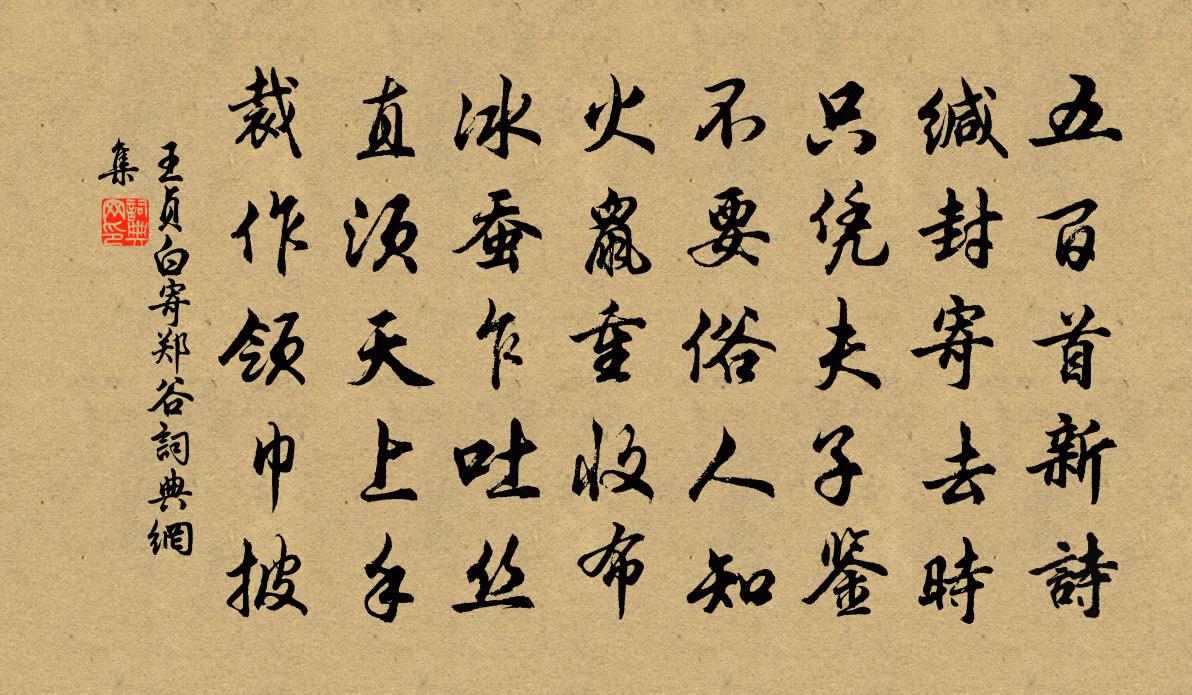 五百首新詩
缄封寄去時
只凭夫子鉴
不要俗人知
火鼠重收布
冰蚕乍吐丝
直须天上手
裁作领巾披
王贞白寄郑谷詞典網
集
詞典网印